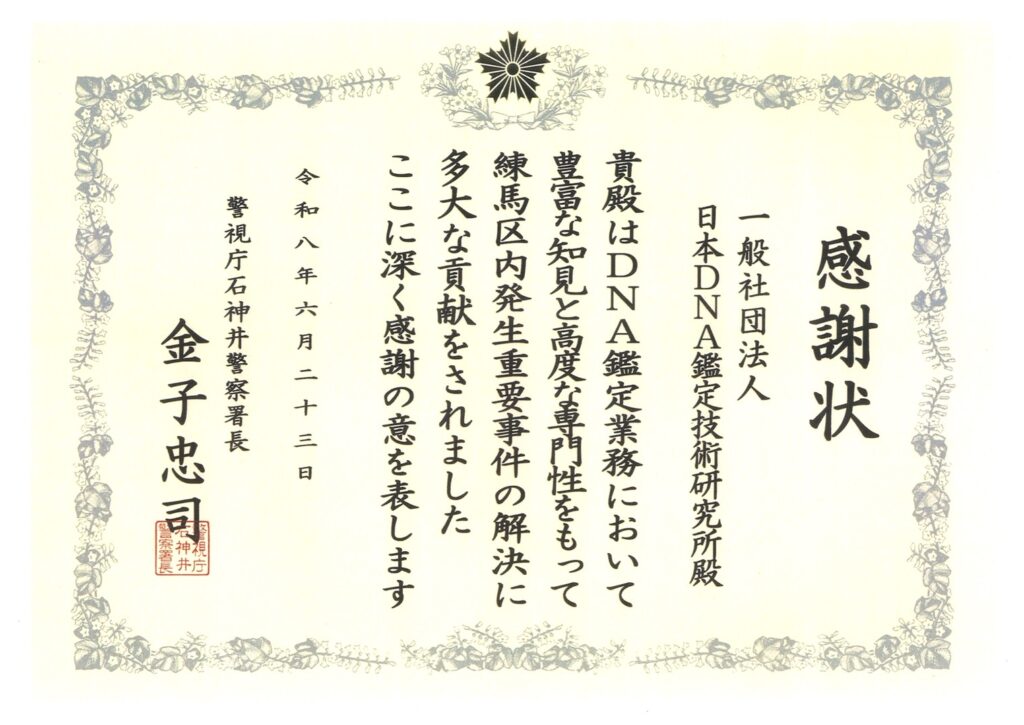 感謝状
一般社団法人
日本DNA鑑定技術研究所殿
貴殿はDNA鑑定業務において
豊富な知見と高度な専門性をもって
練馬区内発生重要事件の解決に
多大な貢献をされました
ここに深く感謝の意を表します
令和八年六月二十三日
警視庁石神井警察署長
金子忠司
警視庁
石神井
警察署長